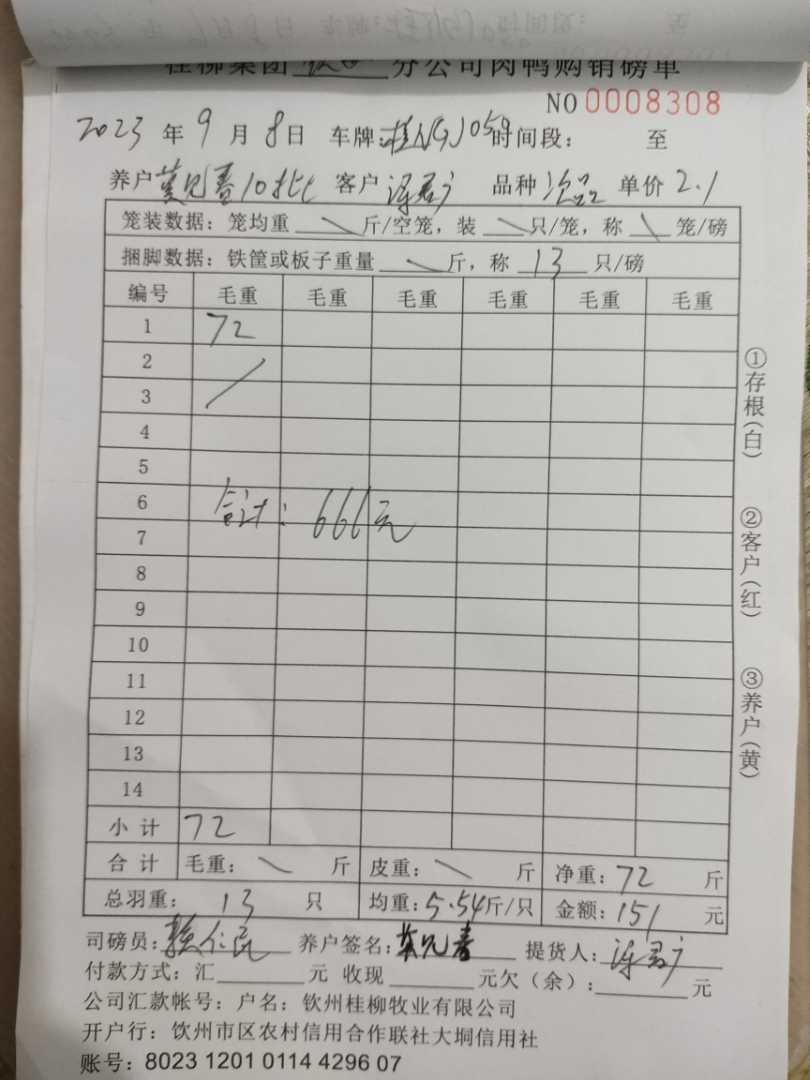 桂柳集团 分公司肉鸭购销磅单
NO 0008308
2023 年 9 月 8 日 车牌:桂N 059 时间段: 至
养户 莫兄春10批 客户 品种 次品 单价 2.1
笼装数据：笼均重 \ 斤/空笼，装 \ 只/笼，称 \ 笼/磅
捆脚数据：铁筐或板子重量 \ 斤，称 13 只/磅
编号 毛重 毛重 毛重 毛重 毛重 毛重
1 72
2
3
4
5
6
合计：666元
7
8
9
10
11
12
13
14
小 计 72
合 计 毛重： \ 斤 皮重： \ 斤 净重：72 斤
总羽重： 13 只 均重：5.54斤/只 金额：151 元
司磅员： 养户签名：莫兄春 提货人：
付款方式：汇 元 收现 元欠（余）： 元
公司汇款帐号：户名：钦州桂柳牧业有限公司
开户行：钦州市区农村信用合作联社大垌信用社
账号：8023 1201 0114 4296 07
①存根（白）
②客户（红）
③养户（黄）